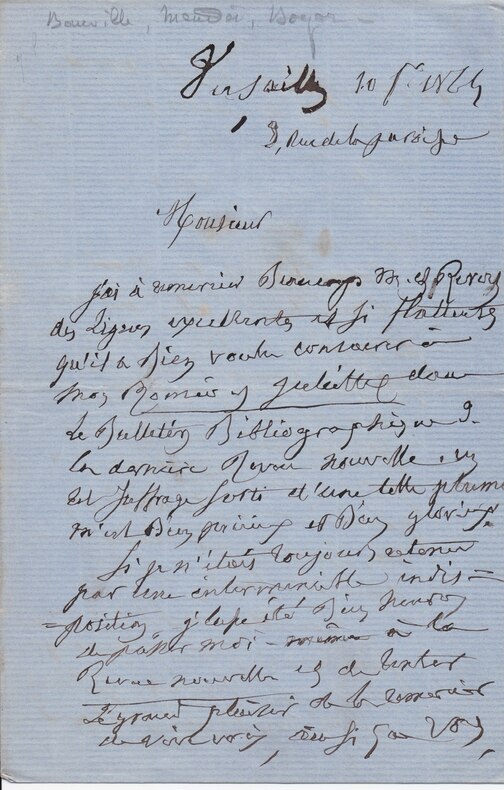 Banville, Mendès, Boyer
Versailles 10 1864
3, Rue de la paroisse
Monsieur
J'ai à remercier Beaucoup M.
des lignes excellentes et si flatteuses
qu'il a Bien voulu consacrer à
mon Roméo et Juliette dans
Le Bulletin Bibliographique
la dernière Revue nouvelle. un
tel suffrage sorti d'une telle plume
m'est Bien précieux et Bien glorieux.
Si je n'étais toujours retenu
par une interminable indis=
=position, j'aurais été Bien heureux
de passer moi-même à la
Revue nouvelle et de tenter
Le grand plaisir de le remercier
de vive voix,